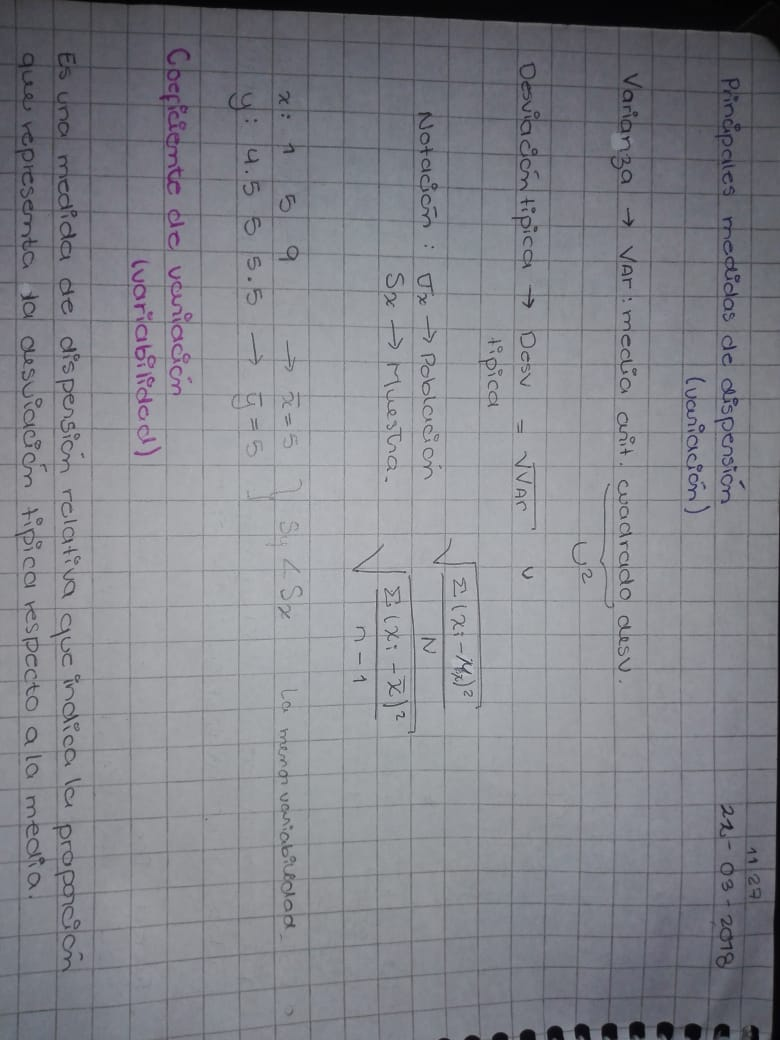 11/27
Principales medidas de dispersión 22-03-2018
(variación)
Varianza → VAr: media arit. cuadrado desv.
U²
Desviación típica → Desv típica = √VAr U
Notación: σx → Población √Σ(xi - μx)²/N
Sx → Muestra. √Σ(xi - x̄)²/n - 1
x: 1 5 9 → x̄ = 5
y: 4.5 5 5.5 → ȳ = 5 } Sy < Sx La menor variabilidad.
Coeficiente de variación
(variabilidad)
Es una medida de dispersión relativa que indica la proporción
que representa la desviación típica respecto a la media.